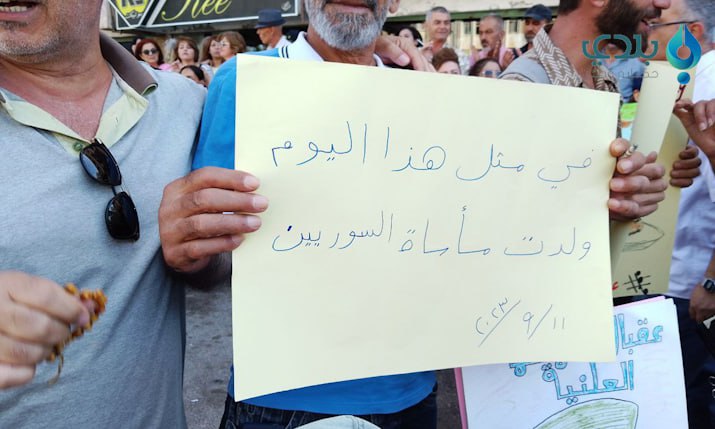 Tree
بلدي
في مثل هذا اليوم
ولدت مأساة السوريين
٢٠٢٣/٩/١١
عقبال
العلنية